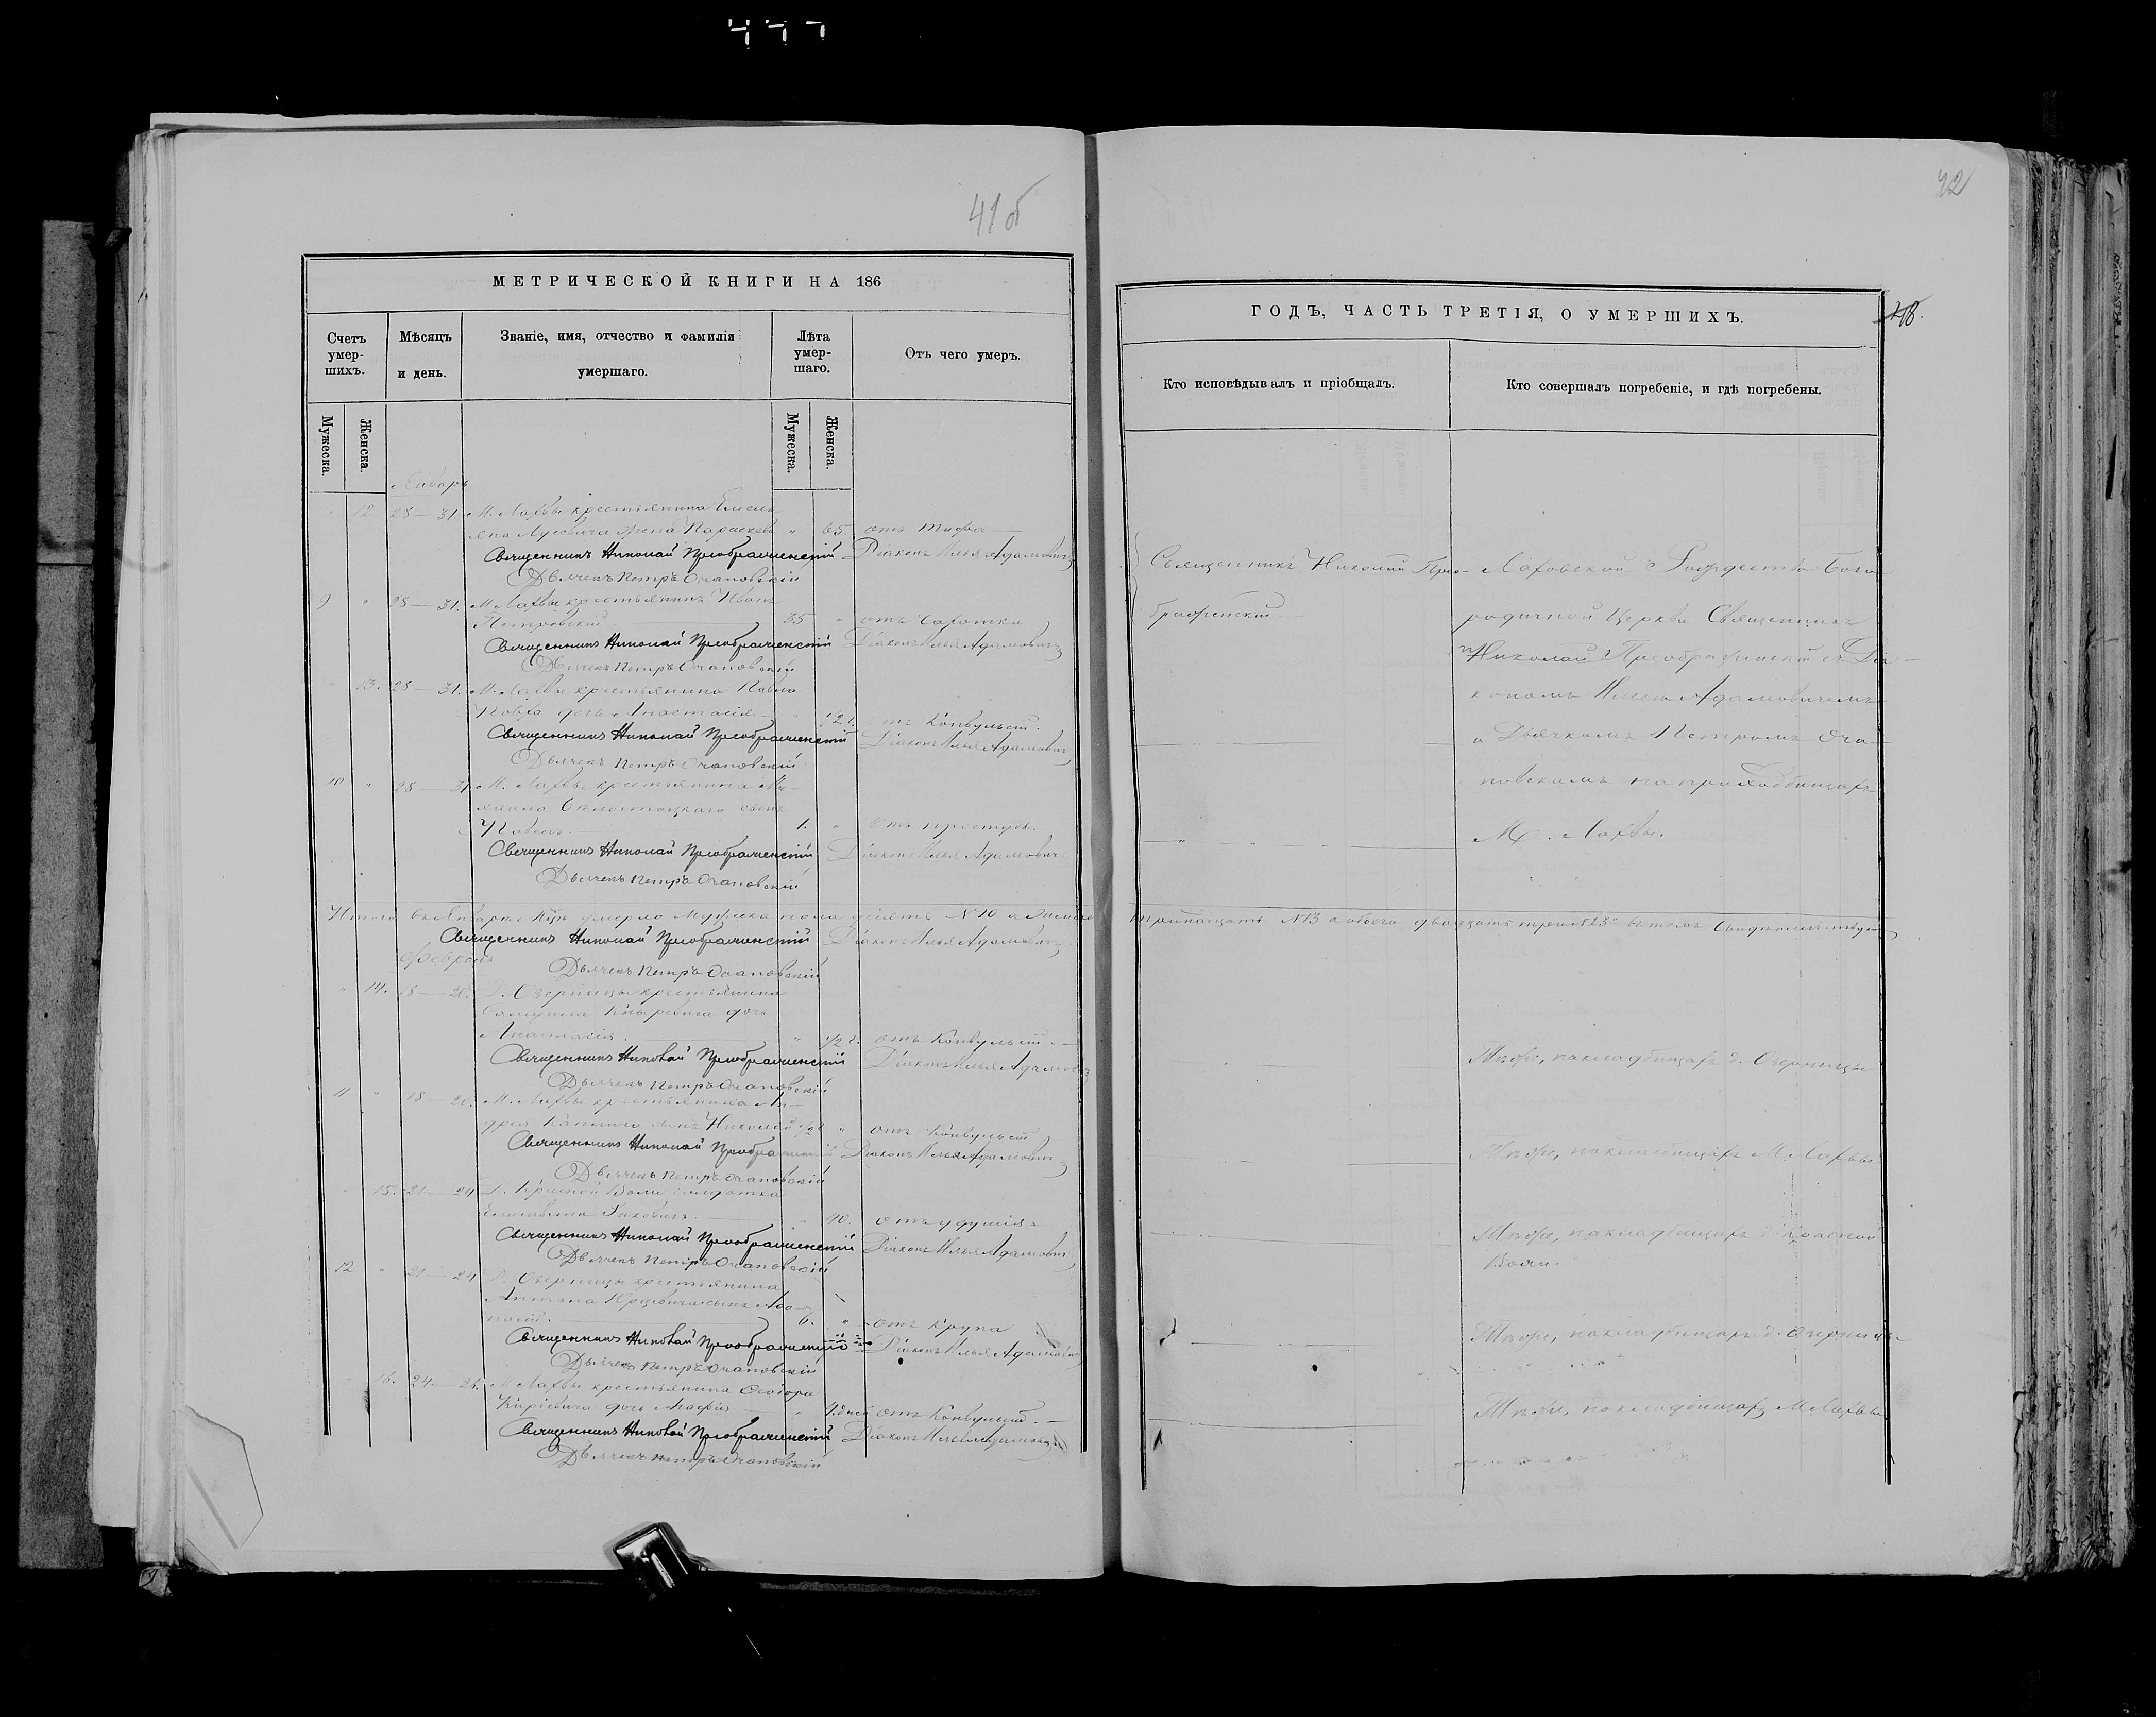 477
41 об
МЕТРИЧЕСКОЙ КНИГИ НА 186
Счетъ умер-шихъ.
Мѣсяцъ и день.
Званіе, имя, отчество и фамилія умершаго.
Лѣта умер-шаго.
Отъ чего умеръ.
Мужеска.
Женска.
Мужеска.
Женска.
Январь
12 28 — 31. М. Лахвы крестьянина Емель
яна жена Параскева " 65. отъ тифа —
Священникъ Николай Преображенскій Діаконъ Илья Адамовичъ
Дьячекъ Петръ Очаповскій
9 " 28 — 31. М Лахвы крестьянинъ Иванъ
Петровскій 35 " отъ чахотки
Священникъ Николай Преображенскій Діаконъ Илья Адамовичъ
Дьячекъ Петръ Очаповскій
" 13. 28 — 31. М. Лахвы крестьянина Павла
дочь Анастасія — отъ конвульсій.
Священникъ Николай Преображенскій Діаконъ Илья Адамовичъ
Дьячекъ Петръ Очаповскій
10 " 28 — 31 М. Лахвы крестьянина Ми-
хаила сынъ
Павелъ 1. " отъ простуды.
Священникъ Николай Преображенскій Діаконъ Илья Адамовичъ
Дьячекъ Петръ Очаповскій
Итого въ Январѣ умерло Мужеска пола десять № 10 а Женска
Священникъ Николай Преображенскій Діаконъ Илья Адамовичъ
Февраль
Дьячекъ Петръ Очаповскій
" 14. 18 — 20. Д. Озерницы крестьянина
дочь
Анастасія. " 1/2 г. отъ конвульсій. —
Священникъ Николай Преображенскій Діаконъ Илья Адамовичъ
Дьячекъ Петръ Очаповскій
11 " 18 — 20. М. Лахвы крестьянина Ан-
дрея сынъ Николай 1/2 " отъ конвульсій
Священникъ Николай Преображенскій Діаконъ Илья Адамовичъ
Дьячекъ Петръ Очаповскій
" 15. 21 — 24 Д. Красной Воли солдатка
Елисавета " 40. отъ удушія
Священникъ Николай Преображенскій Діаконъ Илья Адамовичъ
Дьячекъ Петръ Очаповскій
12 " 21 — 24 Д. Озерницы крестьянина
Антона сынъ Афа-
насій. 6. " отъ крупа
Священникъ Николай Преображенскій Діаконъ Илья Адамовичъ
Дьячекъ Петръ Очаповскій
16. 24. — 26. М Лахвы крестьянина Ѳеодора
дочь Агафія дней отъ конвульсій. —
Священникъ Николай Преображенскій Діаконъ Илья Адамовичъ
Дьячекъ Петръ Очаповскій
42
ГОДЪ, ЧАСТЬ ТРЕТІЯ, О УМЕРШИХЪ.
Кто исповѣдывалъ и пріобщалъ.
Кто совершалъ погребеніе, и гдѣ погребены.
Священникъ Николай Прео-
браженскій
Лаховской Рождество Бого
родичной Церкви Священникъ
Николай Преображенскій съ Діа-
кономъ Ильею Адамовичемъ
и Дьячкомъ Петромъ Оча-
повскимъ на приход. кладбищахъ
М. Лахвы.
тринадцать №13 а обоего двадцать три №23 въ томъ Свидѣтельствуемъ
Тѣже, на кладбищахъ д. Озерницы
Тѣже, на кладбищахъ М. Лахвы
Тѣже, на кладбищахъ д. Красной
Воли.
Тѣже, на кладбищахъ д. Озерницы
Тѣже, на кладбищахъ М Лахвы